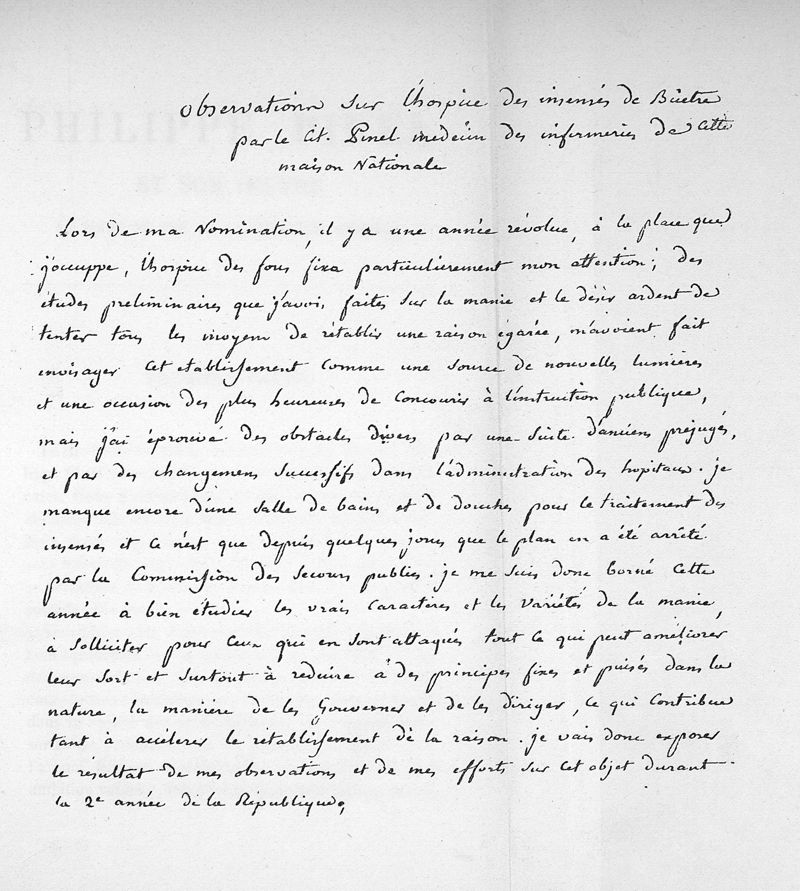 Observations sur l'hospice des insensés de Bicetre
par le Cit. Pinel medecin des infirmeries de cette
maison Nationale
Lors de ma Nomination, il y a une année révolue, à la place que
j'occuppe, l'hospice des fous fixa particulièrement mon attention; des
études preliminaires que j'avois faites sur la manie et le désir ardent de
tenter tous les moyens de rétablir une raison égarée, m'avoient fait
envisager cet etablissement comme une source de nouvelles lumières
et une occasion des plus heureuses de concourir à l'instruction publique,
mais j'ai éprouvé des obstacles divers par une suite d'anciens préjugés,
et par des changemens successifs dans l'administration des hopitaux. je
manque encore d'une salle de bains et de douches pour le traitement des
insensés et ce n'est que depuis quelques jours que le plan en a été arrêté
par la Commission des secours publics. je me suis donc borné cette
année à bien étudier les vrais caractères et les variétés de la manie,
à solliciter pour ceux qui en sont attaqués tout ce qui peut améliorer
leur sort et surtout à reduire à des principes fixes et puisés dans la
nature, la manière de les Gouverner et de les diriger, ce qui contribue
tant à accélerer le rétablissement de la raison. je vais donc exposer
le résultat de mes observations et de mes efforts sur cet objet durant
la 2e année de la République.